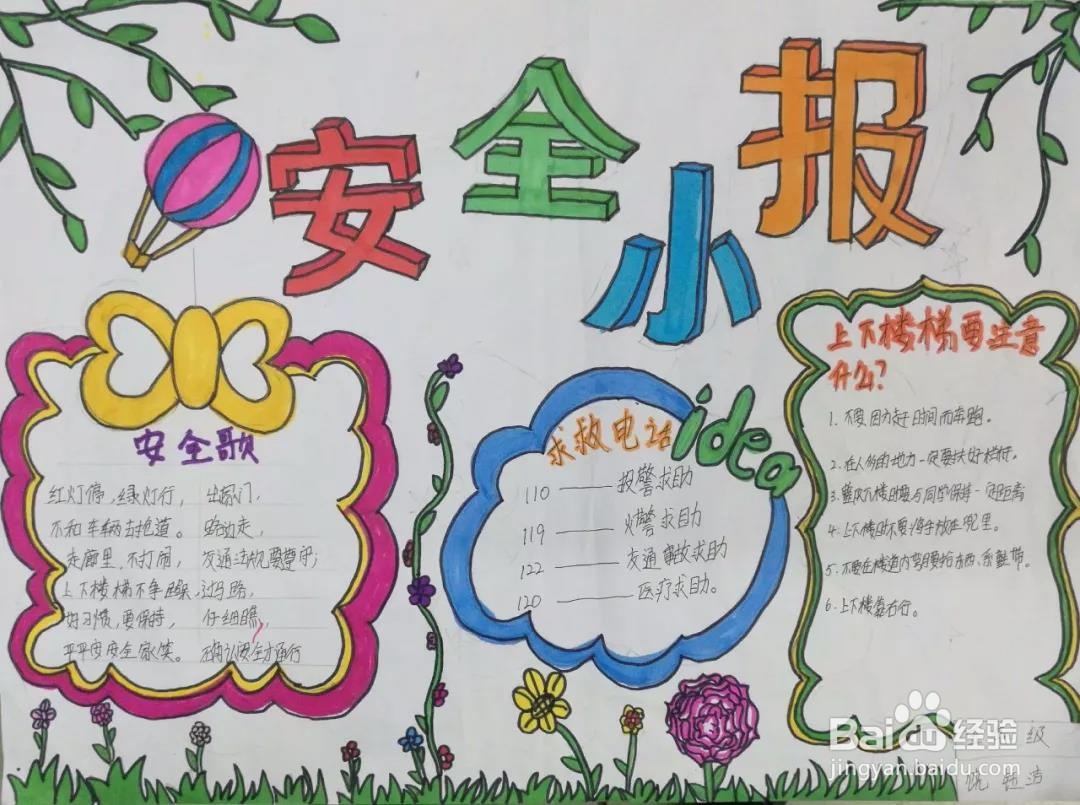 安全小报
安全歌
红灯停,绿灯行,
不和车辆去抢道。
走廊里,不打闹,
上下楼梯不争躁,
好习惯,要保持,
平平安安全家笑。
出家门,
路边走,
交通法规要遵守;
过马路,
仔细瞧,
确认安全才通行
idea
求救电话
110 —— 报警求助
119 —— 火警求助
122 —— 交通事故求助
120 —— 医疗求助。
上下楼梯要注意
什么?
1. 不要因为赶时间而奔跑。
2. 在人多的地方一定要扶好栏杆。
3. 整队下楼时要与同学保持一定距离
4. 上下楼时不要将手放在兜里。
5. 不要在楼道内弯腰拾东西、系鞋带。
6. 上下楼靠右行。
级
Baidu 经验
jingyan.baidu.com